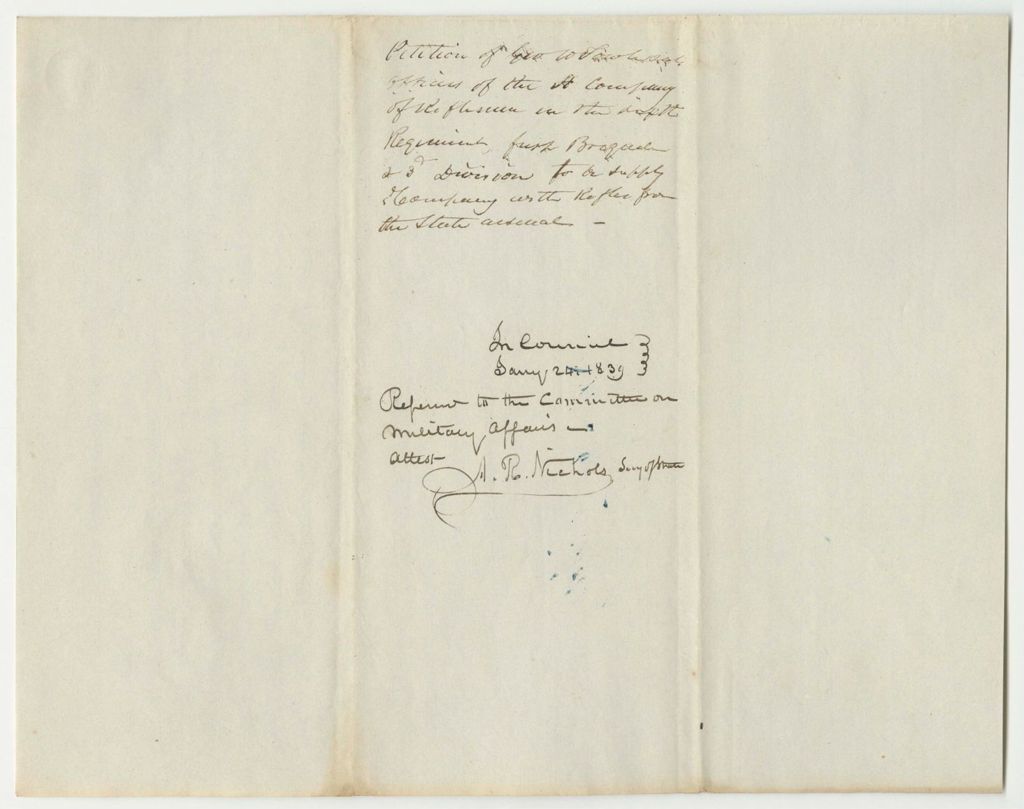 Petition of Geo W
officers of the A Company
of Riflemen in the sixth
Regiment, first Brigade
& 3d Division to be supply
Company with Rifles from
the State arsenal —
In Council
Jany 24. 1839
Referred to the Committee on
Military Affairs —
attest
A. R. Nichols, Secy of State